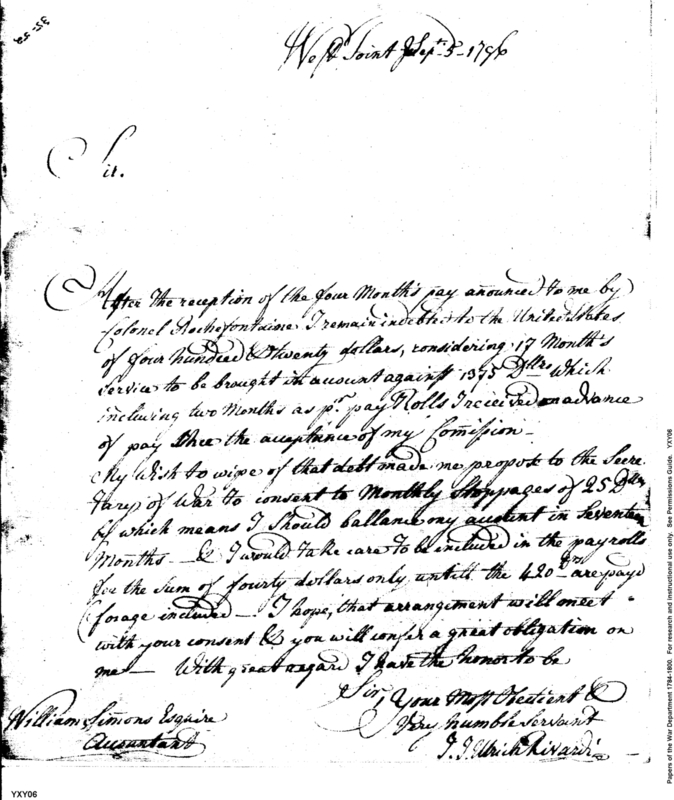 35-58
West Point Sept. 5-1796
Sir.
After the reception of the four Month's pay anounced to me by
Colonel Rochefontaine I remain indebted to the United States
of four hundred & twenty dollars, considering 17 Month's
service to be brought in acount against 1375 Dllrs which
including two Months as pr. pay Rolls I received on advance
of pay since the aceptance of my Comission —
My wish to wipe of that debt made me propose to the Secre
tary of War to consent to Monthly stoppages of 25 Dllrs
by which means I should ballance my acount in Seventeen
Months — & I would take care to be included in the payrolls
for the sum of fourty dollars only untill the 420 Drs are payd
(forage included — I hope, that arrangement will meet
with your consent & you will confer a great obligation on
me — With great regard I have the honor to be
Sir, Your Most Obedient &
Very humble Servant
J. J. Ulrich Rivardi
William Simons Esquire
Acountant
YXY06
Papers of the War Department 1784-1800. For research and instructional use only. See Permissions Guide. YXY06